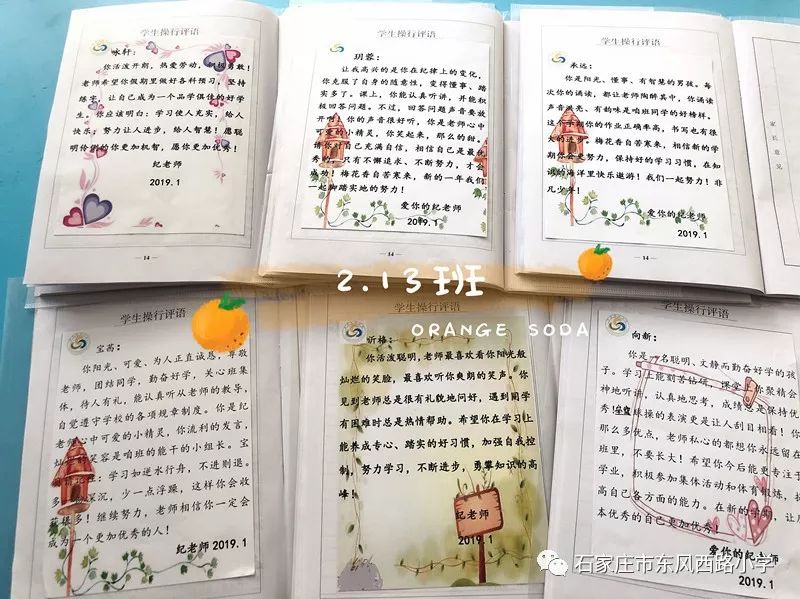 学生操行评语
咏轩：
你活泼开朗，热爱劳动，积极勇敢！
老师希望你假期里做好各科预习，坚持
练字，让自己成为一个品学俱佳的好学
生。你应该明白：学习使人充实，给人
快乐；努力让人进步，给人智慧！愿聪
明伶俐的你更加机智，愿你更加优秀！
纪老师
2019.1
14
学生操行评语
玥蓉：
让我高兴的是你在纪律上的变化，
你克服了自身的随意性，变得懂事、踏
实多了。课上，你能认真听讲，并能积
极回答问题。不过，回答问题声音要放
开啊，你的声音很好听，你是老师心中
可爱的小精灵，你笑起来，那么的甜，
请你对自己充满自信，相信自己是最优
秀的。只有不懈追求、不断努力，才会
成功！梅花香自苦寒来，新的一年我们
一起脚踏实地的努力！
爱你的纪老师
2019.1
14
学生操行评语
永远：
你是阳光、懂事、有智慧的男孩。每
次你的诵读，都让老师陶醉其中，你诵读
声音洪亮、有韵味是咱班同学的好榜样。
这个学期你的作业正确率高，书写也有很
大的进步。梅花香自苦寒来，相信新的学
期你会更努力，保持好的学习习惯，在知
识的海洋里快乐遨游！我们一起努力！非
凡少年！
爱你的纪老师
2019.1
14
家长意见
2.13班
ORANGE SODA
学生操行评语
宝茜：
你阳光、可爱、为人正直诚恳，尊敬
老师，团结同学，勤奋好学，关心班集
体，待人有礼，能认真听从老师的教导，
自觉遵守学校的各项规章制度。你是纪
老师心中可爱的小精灵，你流利的发言，
灿 笑容是咱班的能干的小组长。宝
：学习如逆水行舟，不进则退。
多 深沉，少一点浮躁，这样你会收
获很多！继续努力，老师相信你一定会
成为一个更加优秀的人！
纪老师 2019.1
学生操行评语
昕格：
你活泼聪明，老师最喜欢看你阳光般
灿烂的笑脸，最喜欢听你爽朗的笑声。你
见到老师总是很有礼貌地问好，遇到同学
有困难时总是热情帮助。希望你在学习上
能养成专心、踏实的好习惯，加强自我控
制，努力学习，不断进步，勇攀知识的高
峰！
纪老师
2019.1
学生操行评语
向新：
你是一名聪明、文静而勤奋好学的孩
子。学习上能刻苦钻研，课堂上你聚精会
神地听讲，认真地思考，成绩总是保持优
秀！ 操的表演更是让人刮目相看！你
那么多优点，老师私心的都想你永远留在
班里，不要长大！希望你今后能更专注于
学业，积极参加集体活动和体育锻炼，提
高自己各方面的能力。在新的学期，让
本优秀的自己更加优秀！
爱你的纪老师
2019.1
石家庄市东风西路小学